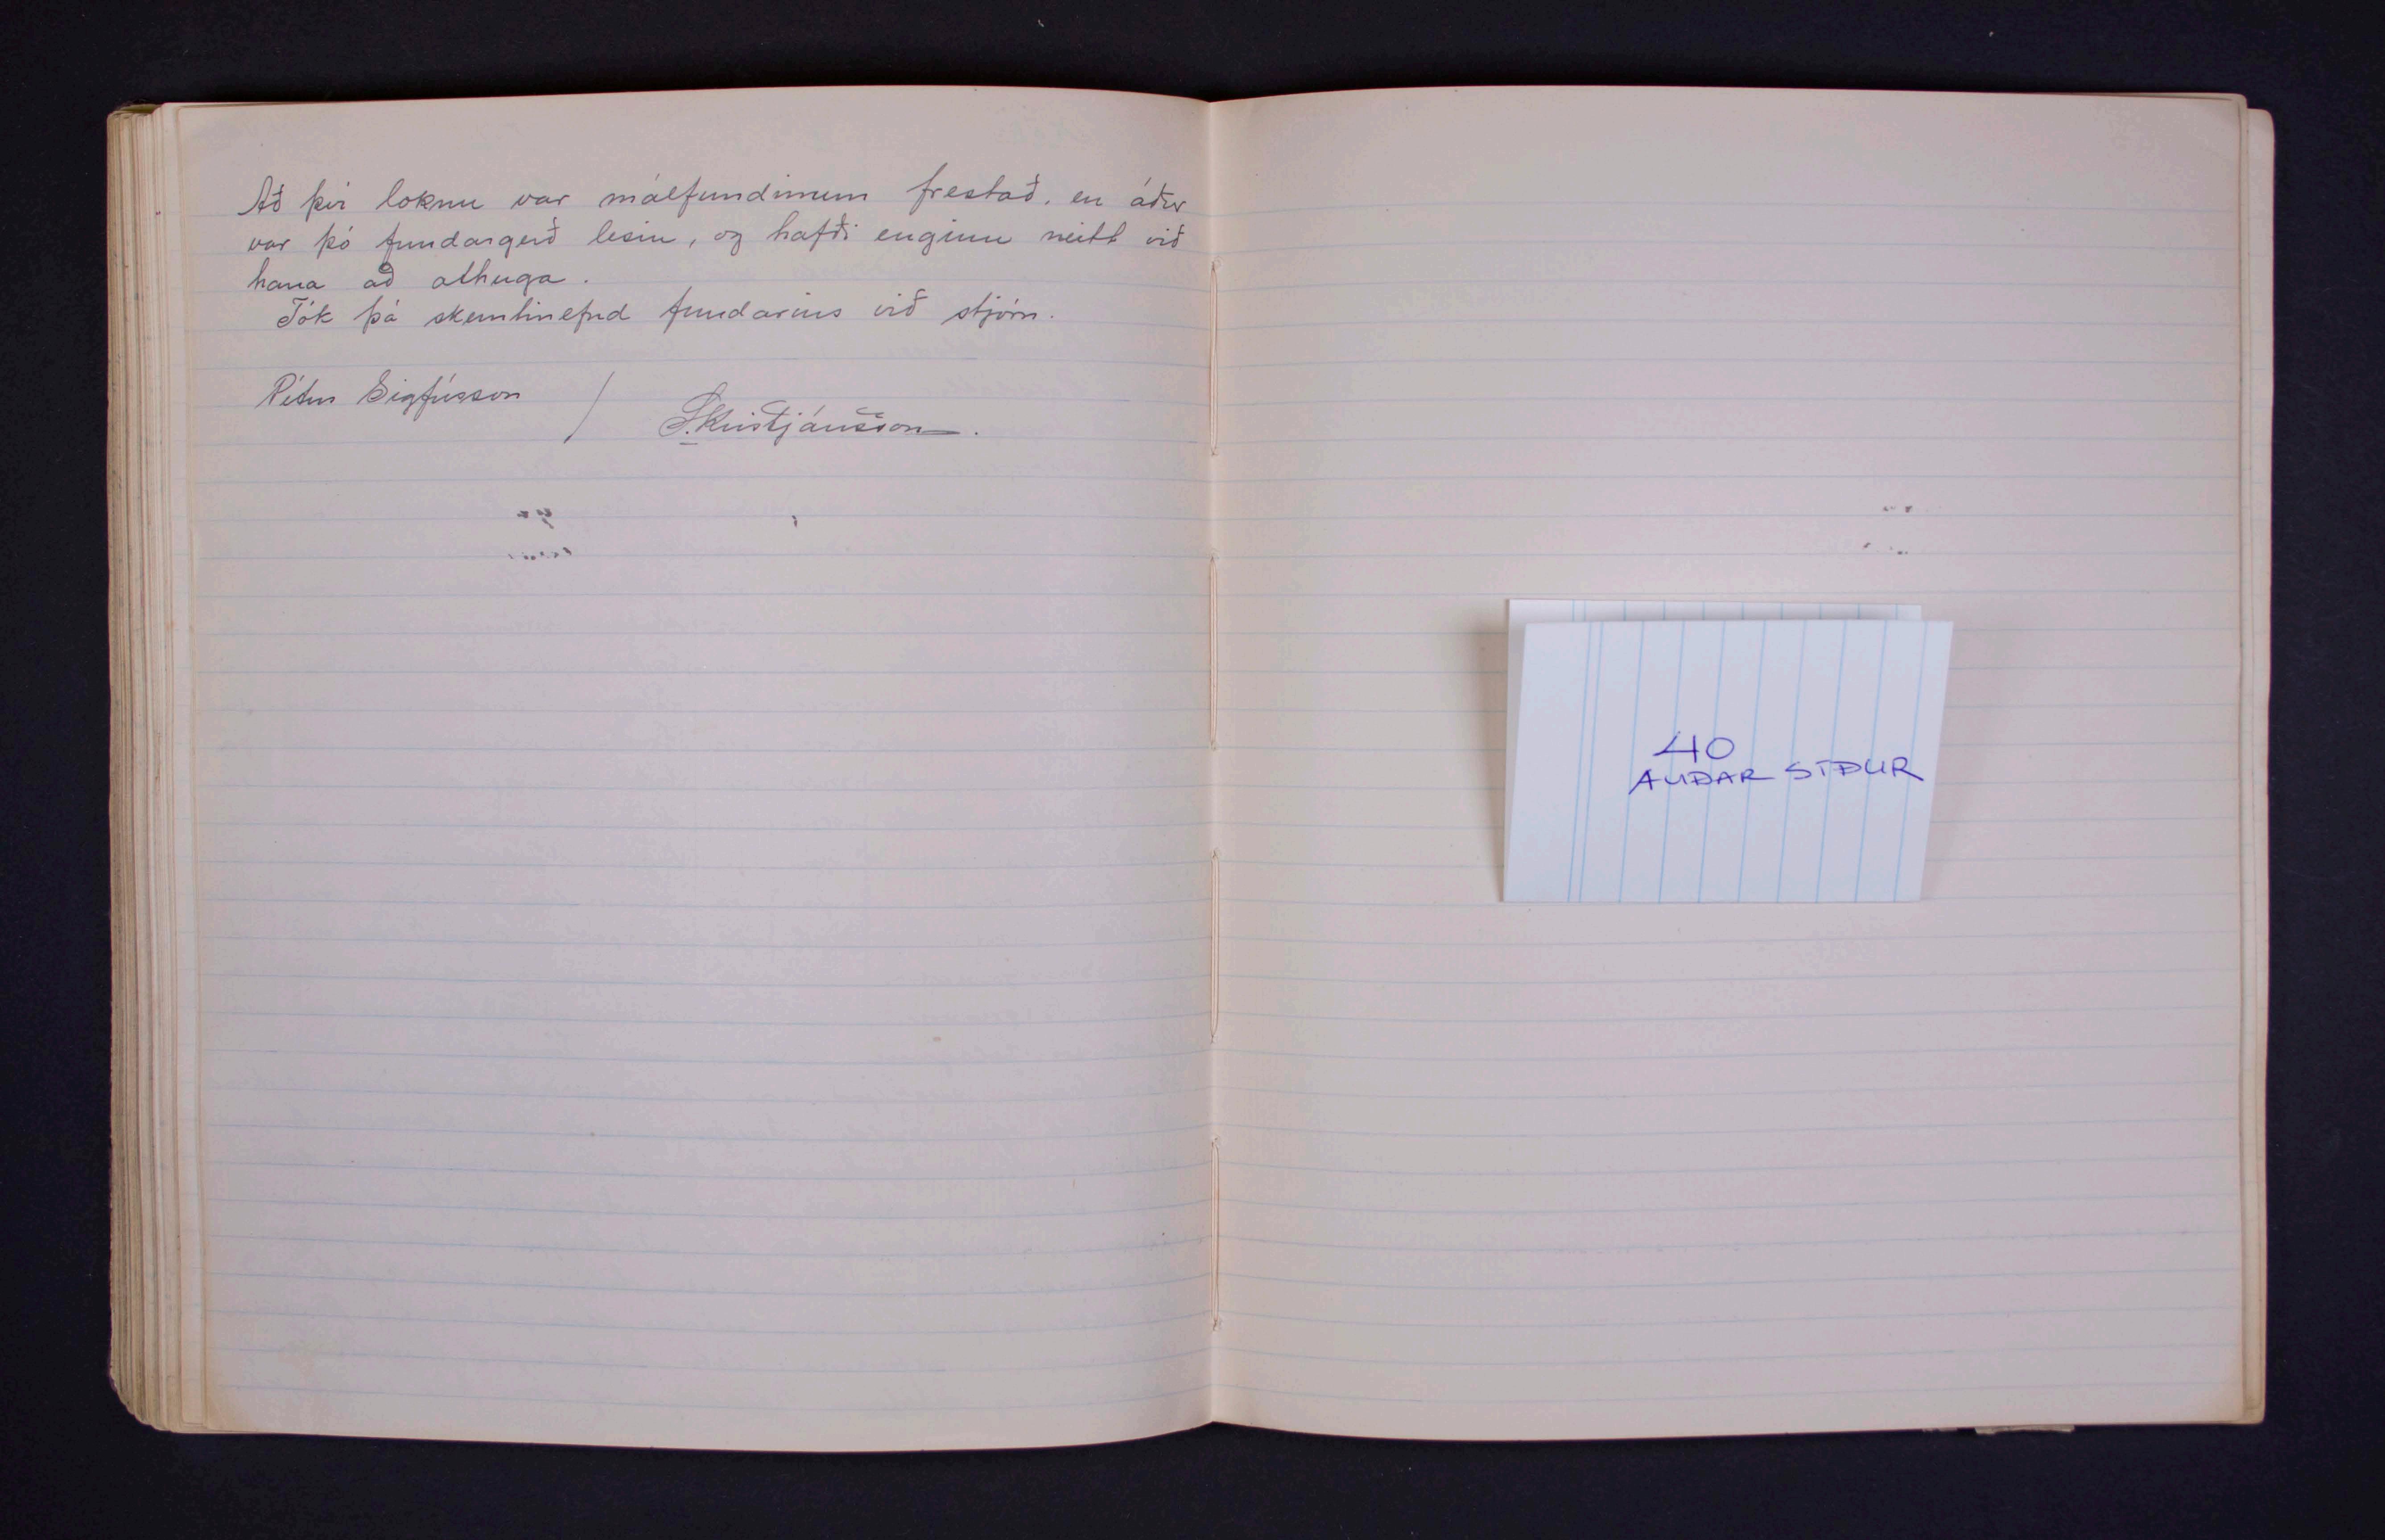 Að því loknu var málfundinum frestað, en áður
var þó fundargerð lesin, og hafði enginn neitt við
hana að athuga.
Tók þá skemtinefnd fundarins við stjórn.
Pétur Sigfússon / S. Kristjánsson.
40
AUÐAR SÍÐUR